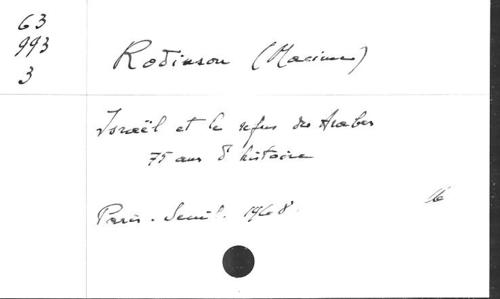 63
993
3
Rodinson (Maxime)
Israël et le refus des Arabes
75 ans d'histoire
Paris. Seuil. 1968.